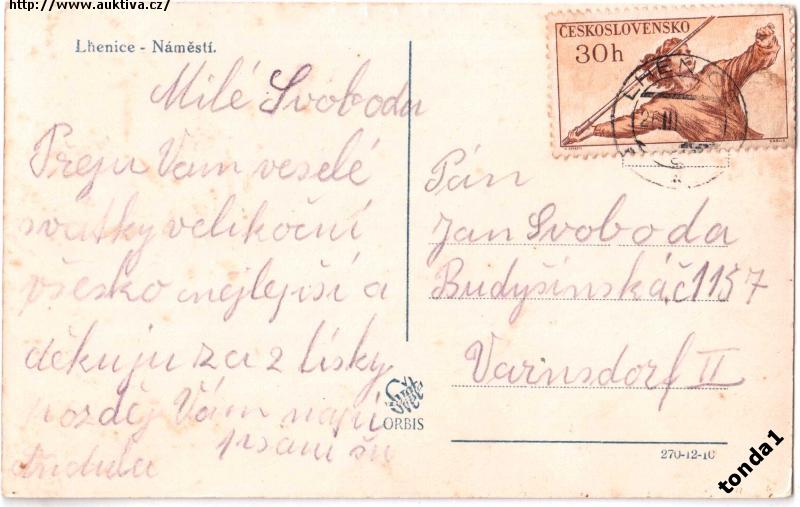 http://www.auktiva.cz/
Lhenice - Náměstí.
ČESKOSLOVENSKO
30h
LHENICE
Milé Svoboda
Přeju Vám veselé
svatky velikoční
všesko nejlepší a
děkuju za z lísky
pozděj Vám napí
psaní
Pán
Jan Svoboda
Budyšínská č 1157
Varnsdorf II
Svět
ORBIS
270-12-10
tonda1